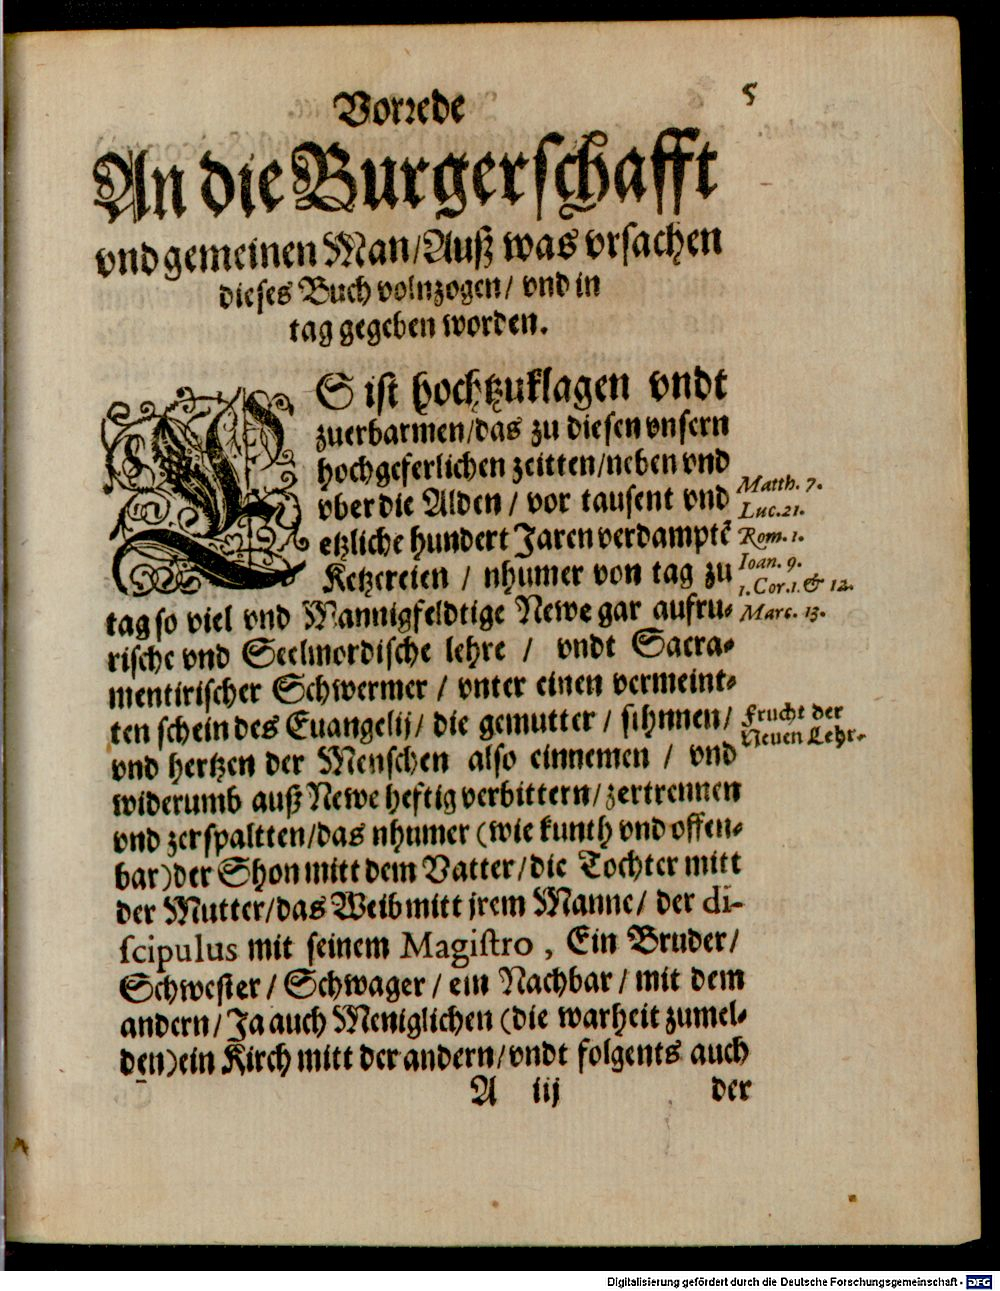 Vorrede
5
An die Burgerschafft
vnd gemeinen Man/ Auß was vrsachen
dieses Buch volnzogen/ vnd in
tag gegeben worden.
ES ist hochtzuklagen vndt
zuerbarmen/das zu diesen vnsern
hochgeferlichen zeitten/neben vnd
vber die Alden / vor tausent vnd
etzliche hundert Jaren verdampte͂
Ketzereien / nhumer von tag zu
tag so viel vnd Mannigfeldtige Newe gar aufru-
rische vnd Seelmordische lehre / vndt Sacra-
mentirischer Schwermer / vnter einen vermeint-
ten schein des Euangelij/ die gemutter / sihnnen/
vnd hertzen der Menschen also einnemen / vnd
widerumb auß Newe heftig verbittern/ zertrennen
vnd zerspaltten/das nhumer (wie kunth vnd offen-
bar) der Shon mitt dem Vatter/die Tochter mitt
der Mutter/das Weib mitt jrem Manne/ der di-
scipulus mit seinem Magistro , Ein Bruder/
Schwester / Schwager / ein Nachbar / mit dem
andern/ Ja auch Meniglichen (die warheit zumel-
den) ein Kirch mitt der andern/vndt folgents auch
A iij
der
Matth. 7.
Luc. 21.
Rom. 1.
Ioan. 9.
1. Cor. 1. & 12.
Marc. 13.
Frucht der
Neuen Lehr.
Digitalisierung gefördert durch die Deutsche Forschungsgemeinschaft - DFG